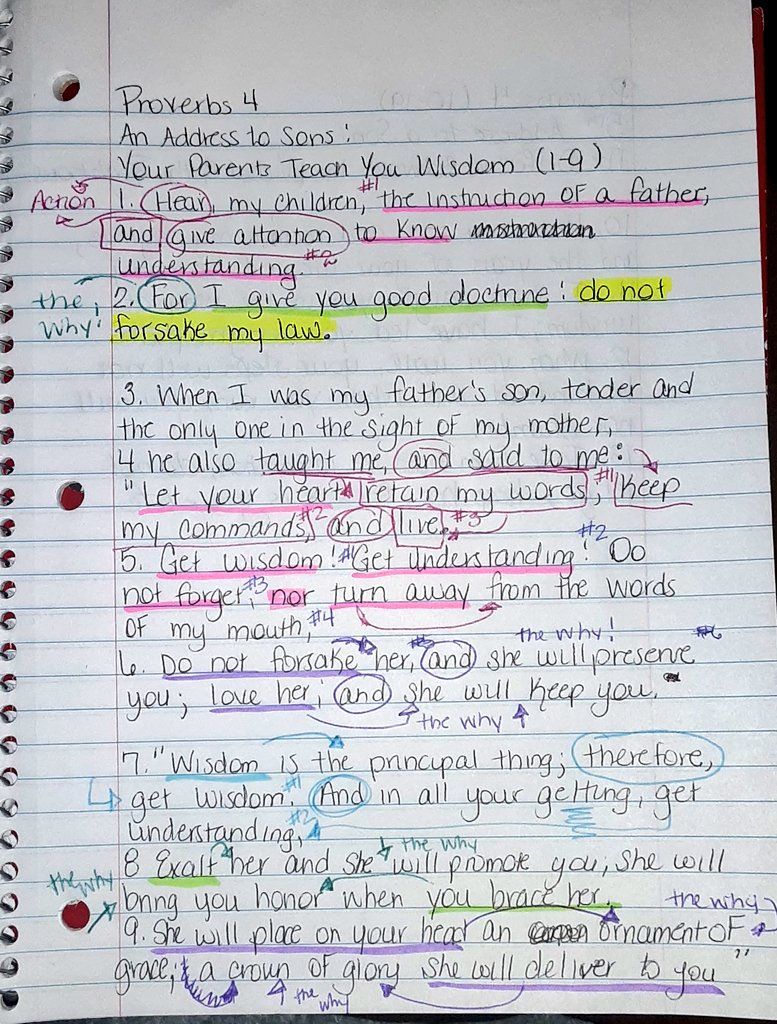 Proverbs 4
An Address to Sons:
Your Parents Teach You Wisdom (1-9)
Action 1. Hear, my children, #1 the instruction of a father,
and give attention to know
understanding. #2
the why! 2. For I give you good doctrine: do not
forsake my law.
3. When I was my father's son, tender and
the only one in the sight of my mother,
4 he also taught me, and said to me:
"Let your heart retain my words; #1 Keep
my commands, #2 and live. #3
5. Get wisdom! #1 Get understanding! #2 Do
not forget, #3 nor turn away from the words
of my mouth, #4
the why!
6. Do not forsake her, and she will preserve
you; love her, and she will keep you."
the why
7. "Wisdom is the principal thing; therefore,
get wisdom. #1 And in all your getting, get
understanding. #2
the why
8 Exalt her and she will promote you, she will
the why bring you honor when you brace her. the why
9. She will place on your head an ornament of
grace; a crown of glory she will deliver to you"
the why